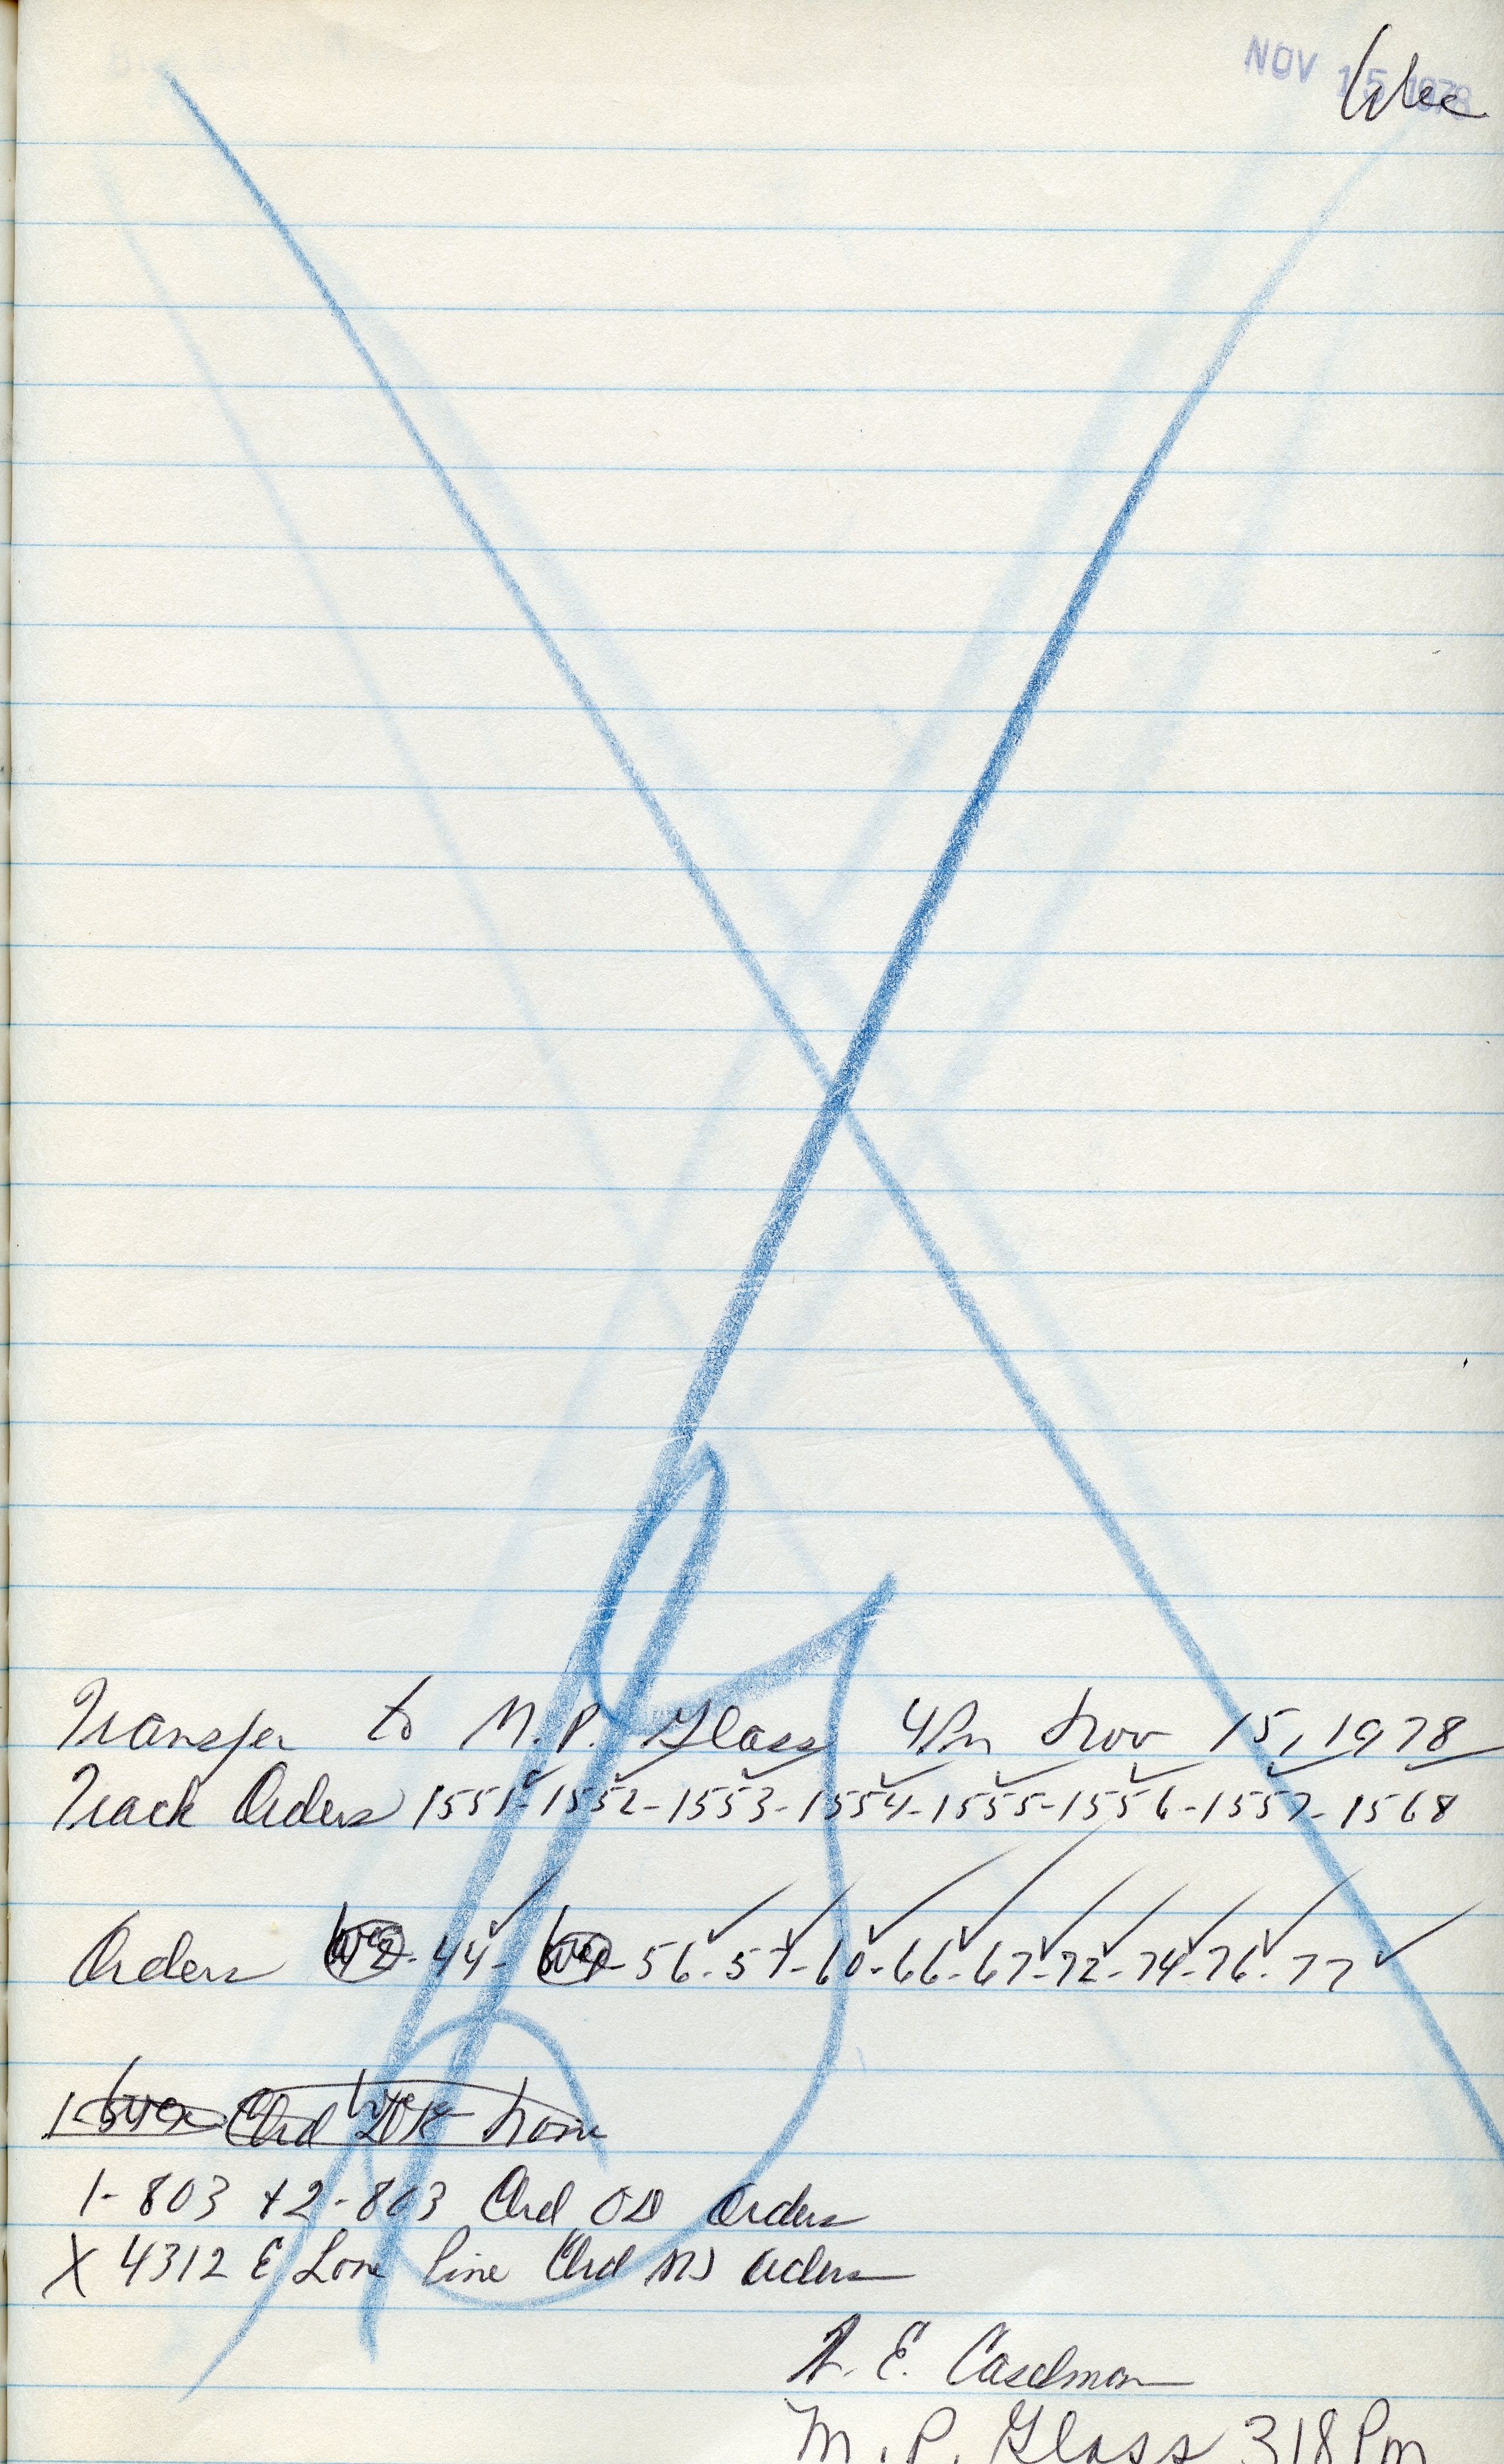 NOV 15 1978
Transfer to M.P. Glass 4Pm Nov 15, 1978
Track Orders 1551-1552-1553-1554-1555-1556-1557-1568
Orders 44- 56-57-60-66-67-72-74-76-77
1-803 +2-803 Clrd OD Orders
X 4312 E Lone Pine Clrd Orders
E. Caselman
M. P. Glass 318 Pm